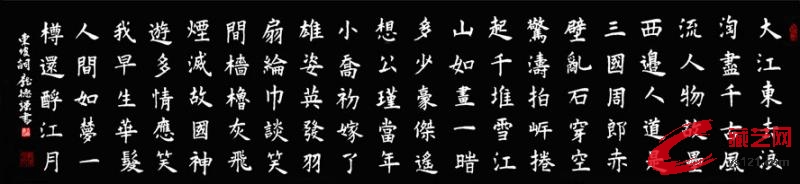 大江東去浪
淘盡千古風
流人物故壘
西邊人道是
三國周郎赤
壁亂石穿空
驚濤拍岍捲
起千堆雪江
山如畫一時
多少豪傑遙
想公瑾當年
小喬初嫁了
雄姿英發羽
扇綸巾談笑
間檣櫓灰飛
煙滅故國神
遊多情應笑
我早生華髮
人間如夢一
樽還酹江月
東坡詞
藏艺网